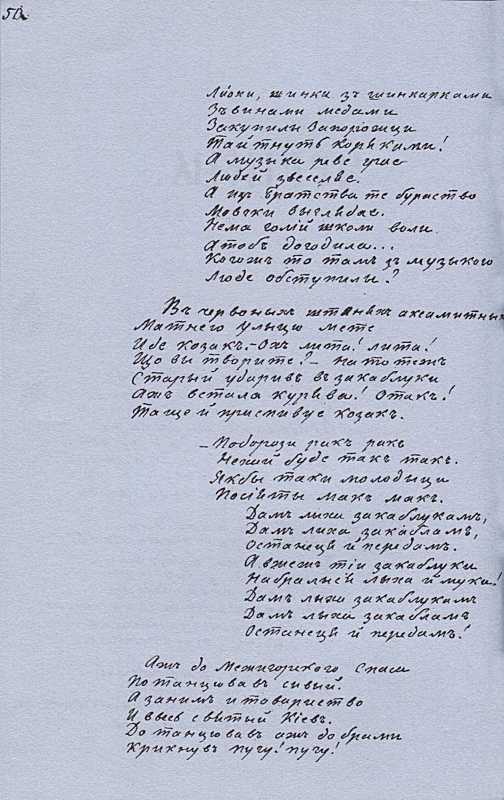 50
Ляхи, жинки зъ шинкарками
Зъ винами медами
Закупилы Запорожци
Тай тнуть корьками!
А музыка реве грає
Людей звеселяє.
А изъ братства те бурсатство
Мовчки выглядає.
Нема голій школи воли.
Атобъ догодила...
Когожъ то тамъ зъ музыкою
Люде обступили?
Въ червоныхъ штанахъ аксамитныхъ
Матнею улыцю мете
Иде козакъ. - Охъ лита! лита!
Що вы творите? - На тотежъ
Старый ударивъ въ закаблуки
Ажъ встала курява! Отакъ!
Та ще й приспивує козакъ.
- По дорози ракъ ракъ
Нехай буде такъ такъ.
Якбы таки молодыци
Посіяты макъ макъ.
Дамъ лыха закаблукамъ,
Дамъ лиха закабламъ,
Останеця й передамъ.
А вжежъ тіи закаблуки
Набралыся лыха й муки!
Дамъ лыха закаблукамъ
Дамъ лыха закабламъ
Останеця й передамъ!
Ажъ до Межигорского Спаса
Потанцювавъ сивый.
А занимъ и товариство
И ввесь святый Кіевъ.
До танцювавъ ажъ до брами
Крикнувъ пугу! пугу!